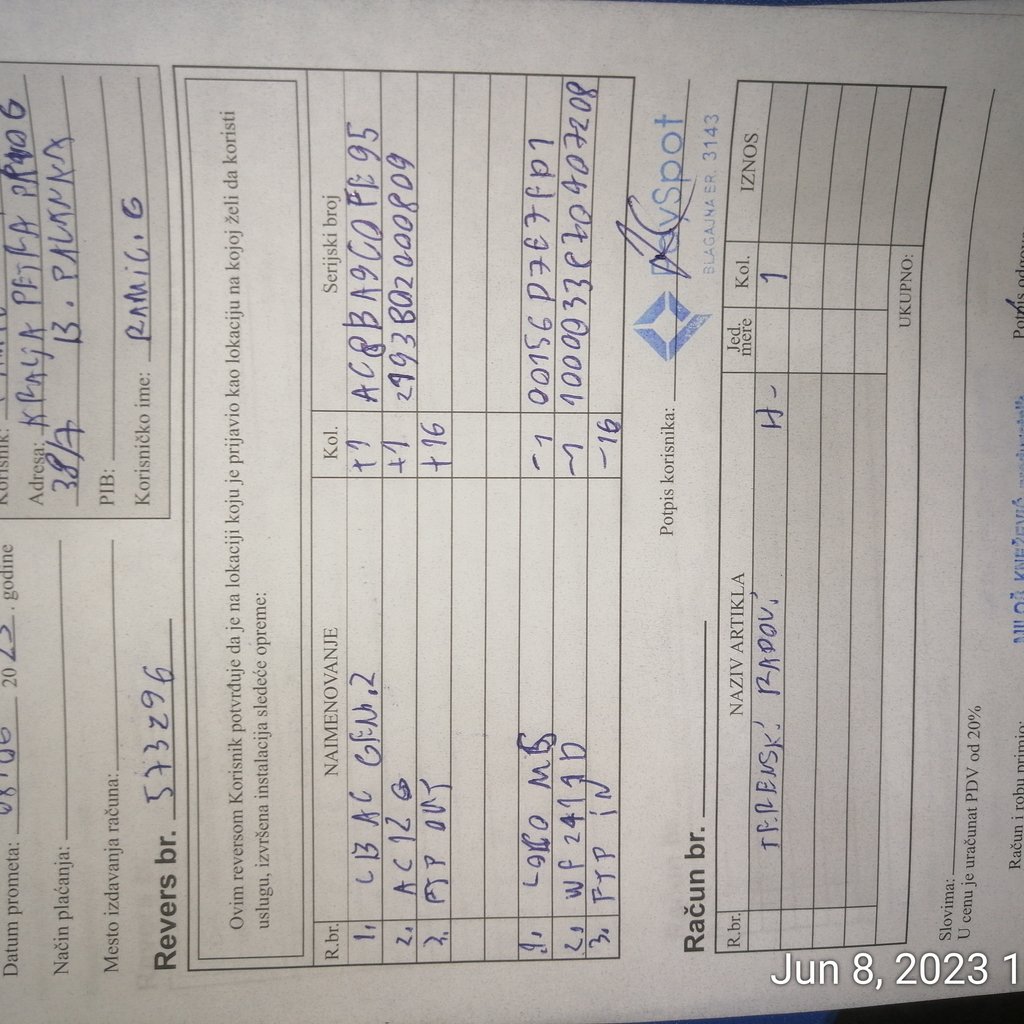 Datum prometa: 08.06 2023. godine
Način plaćanja:
Mesto izdavanja računa:
Revers br. 573296
Korisnik:
Adresa: KRALJA PETRA PRVOG
38/A B. PALANKA
PIB:
Korisničko ime: RAMIĆI.G
Ovim reversom Korisnik potvrđuje da je na lokaciji koju je prijavio kao lokaciju na kojoj želi da koristi
uslugu, izvršena instalacija sledeće opreme:
R.br. NAIMENOVANJE Kol. Serijski broj
1. LB AC GEN.2 +1
2. AC12 +1 2193B02000809
3. FTP OUT +16
1. MB -1 00156D7E7FD1
2. -1
3. FTP IN -16
Potpis korisnika:
PaySpot
BLAGAJNA BR. 3143
Račun br.
R.br. NAZIV ARTIKLA Jed. mere Kol. IZNOS
TERENSKI RADOVI H- 1
UKUPNO:
Slovima:
U cenu je uračunat PDV od 20%
Račun i robu primio:
MILOŠ KNEŽEVIĆ
Potpis odgov
Jun 8, 2023 1